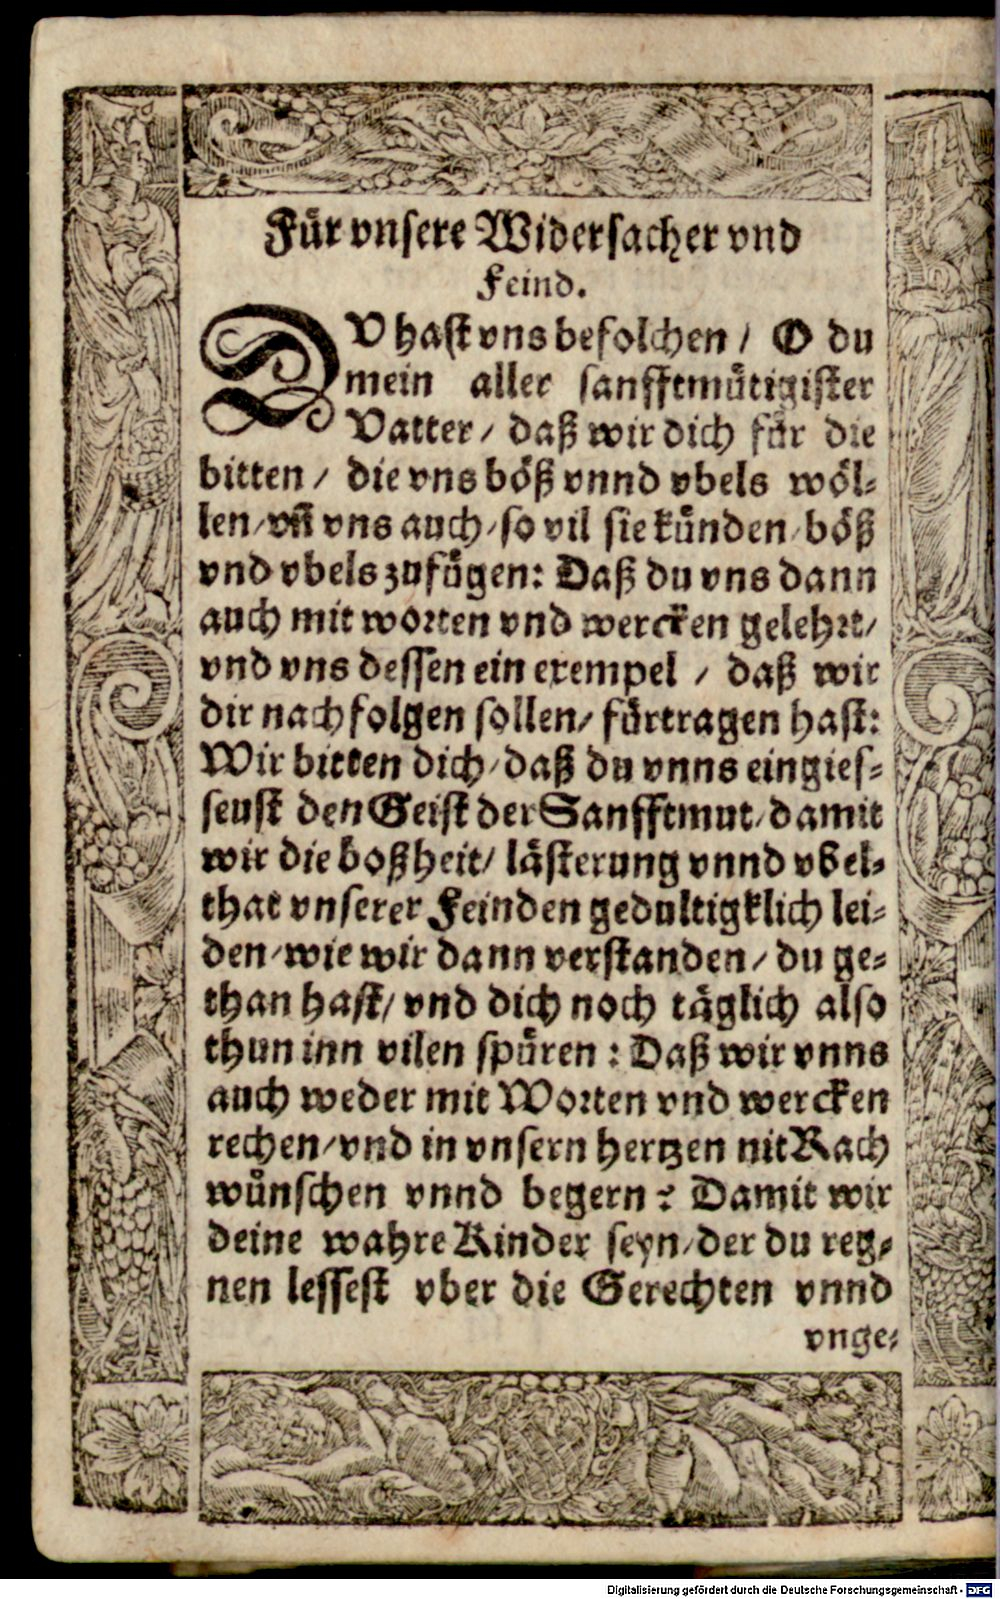 Für vnsere Widersacher vnd
Feind.
DV hast vns befolchen / O du
mein aller sanfftmütigister
Vatter / daß wir dich für die
bitten / die vns böß vnnd vbels wöl-
len / vñ vns auch / so vil sie künden / böß
vnd vbels zufügen: Daß du vns dann
auch mit worten vnd wercken gelehrt /
vnd vns dessen ein exempel / daß wir
dir nachfolgen sollen / fürtragen hast:
Wir bitten dich / daß du vnns eingies-
seust den Geist der Sanfftmut / damit
wir die boßheit / lästerung vnnd vbel-
that vnserer Feinden gedultigklich lei-
den / wie wir dann verstanden / du ge-
than hast / vnd dich noch täglich also
thun inn vilen spüren : Daß wir vnns
auch weder mit Worten vnd wercken
rechen / vnd in vnsern hertzen nit Rach
wünschen vnnd begern: Damit wir
deine wahre Kinder seyn / der du reg-
nen lessest vber die Gerechten vnnd
vnge-
Digitalisierung gefördert durch die Deutsche Forschungsgemeinschaft - DFG